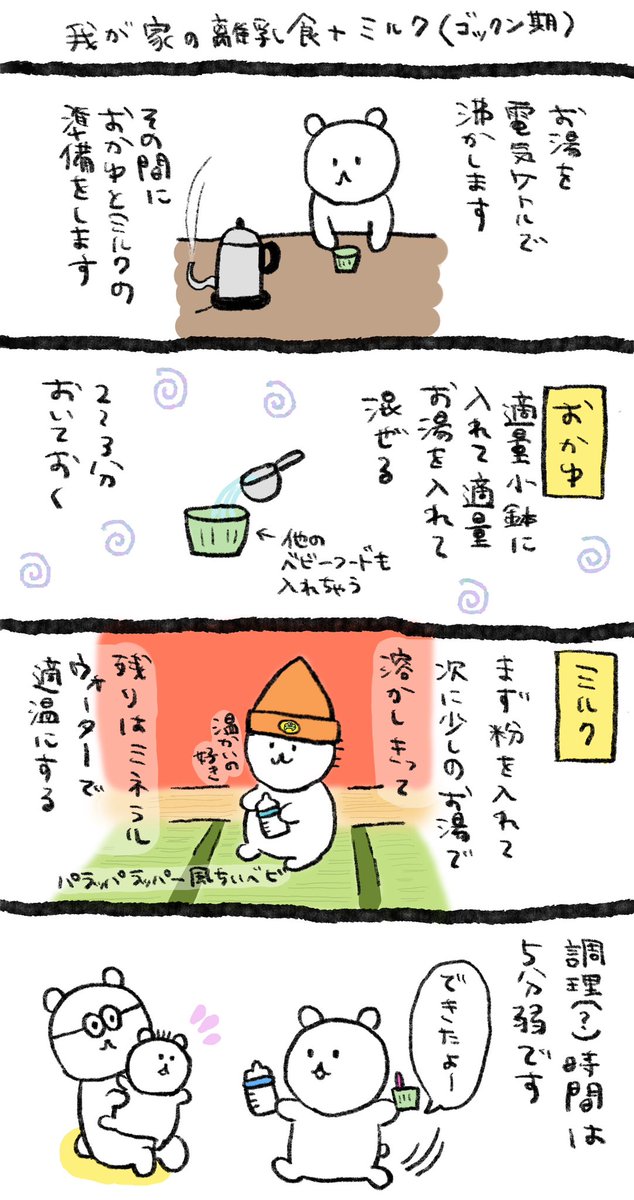 我が家の離乳食+ミルク(ゴックン期)
お湯を
電気ケトルで
沸かします
その間に
おかゆとミルクの
準備をします
おかゆ
適量小鉢に
入れて適量
お湯を入れて
混ぜる
←他の
ベビーフードも
入れちゃう
2〜3分
おいておく
ミルク
まず粉を入れて
次に少しのお湯で
溶かしきって
温かいの
好き
残りはミネラル
ウォーターで
適温にする
パラッパラッパー風ちいベビ
調理(?)時間は
5分弱です
できたよー